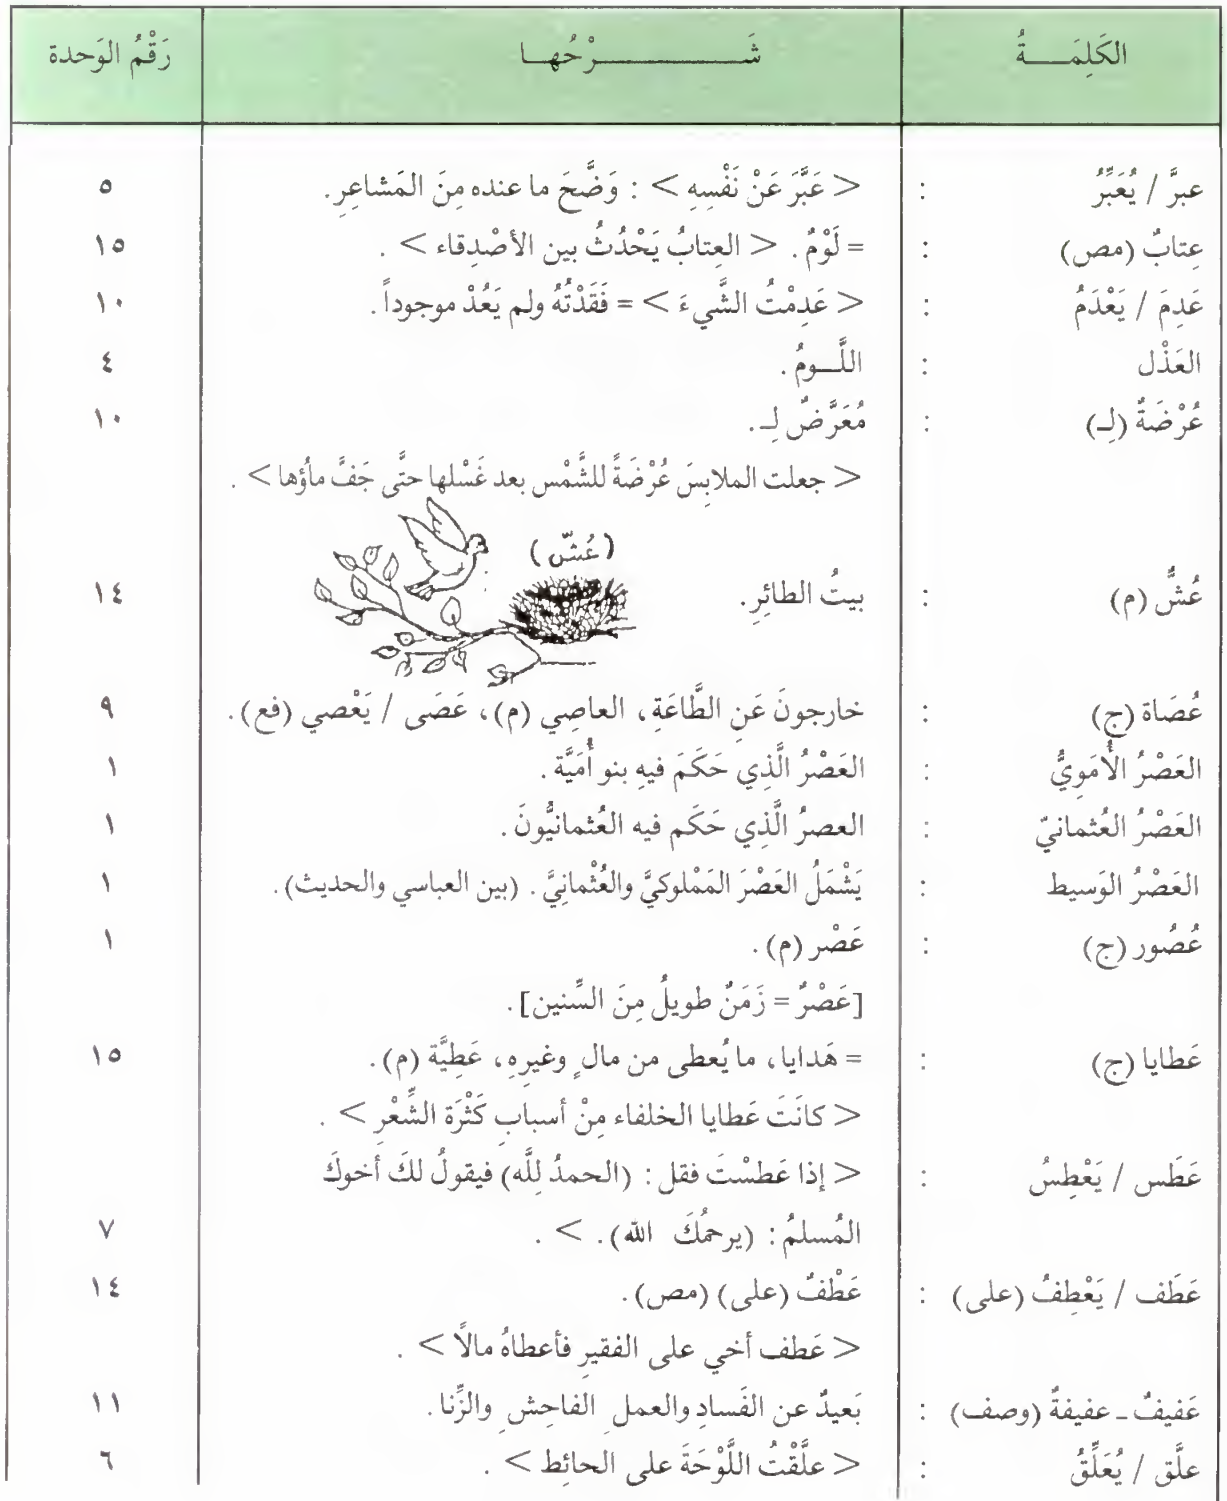 الكَلِمَـــةُ شَــــــــرْحُهـــا رَقْمُ الوَحدة
عبرَّ / يُعَبِّرُ : < عَبَّرَ عَنْ نَفْسِهِ > : وَضَّحَ ما عنده مِنَ المَشاعِرِ . ٥
عِتابٌ (مص) : = لَوْمٌ . < العِتابُ يَحْدُثُ بين الأصْدِقاء > . ١٥
عَدِمَ / يَعْدَمُ : < عَدِمْتُ الشَّيءَ > = فَقَدْتُهُ ولم يَعُدْ موجوداً . ١٠
العَذْل : اللَّـــومُ . ٤
عُرْضَةٌ (لِـ) : مُعَرَّضٌ لِـ . ١٠
< جعلت الملابِسَ عُرْضَةً للشَّمْس بعد غَسْلها حتَّى جَفَّ ماؤها > .
(عُشّ)
عُشٌّ (م) : بيتُ الطائِرِ . ١٤
عُصَاة (ج) : خارجونَ عَنِ الطَّاعَةِ ، العاصِي (م) ، عَصَى / يَعْصي (فع) . ٩
العَصْرُ الأُمَوِيُّ : العَصْرُ الَّذِي حَكَمَ فيهِ بنو أُمَيَّة . ١
العَصْرُ العُثمانيّ : العصرُ الَّذِي حَكَم فيه العُثمانيُّونَ . ١
العَصْرُ الوَسيط : يَشْمَلُ العَصْرَ المَمْلوكيَّ والعُثْمانِيَّ . (بين العباسي والحديث) . ١
عُصُور (ج) : عَصْر (م) . ١
[عَصْرٌ = زَمَنٌ طويلُ مِنَ السِّنين] .
عَطايا (ج) : = هَدايا ، ما يُعطى من مالٍ وغيرِهِ ، عَطِيَّة (م) . ١٥
< كانَتَ عَطايا الخلفاء مِنْ أسبابِ كَثْرَة الشِّعْرِ > .
عَطَس / يَعْطِسُ : < إذا عَطسْتَ فقل : (الحمدُ لِلَّه) فيقولُ لكَ أخوكَ
المُسلمُ : (يرحمُكَ الله) . > . ٧
عَطَف / يَعْطِفُ (على) : عَطْفٌ (على) (مص) . ١٤
< عَطف أخي على الفقيرِ فأعطاهُ مالًا > .
عَفيفٌ ـ عفيفةٌ (وصف) : بَعيدٌ عن الفَسادِ والعملِ الفاحِشِ والزِّنا . ١١
علَّق / يُعَلِّقُ : < علَّقْتُ اللَّوْحَةَ على الحائِط > . ٦